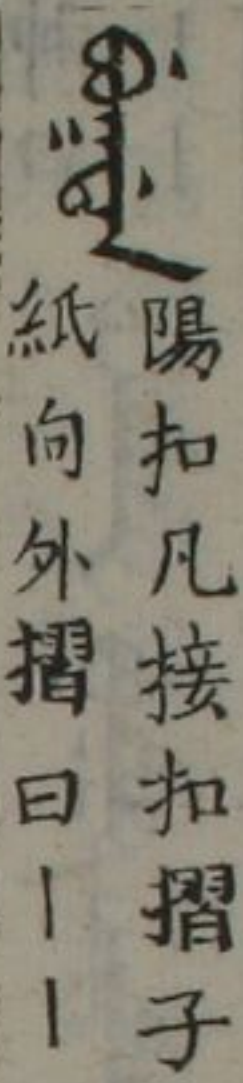 陽扣凡接扣摺子
紙向外摺曰｜｜